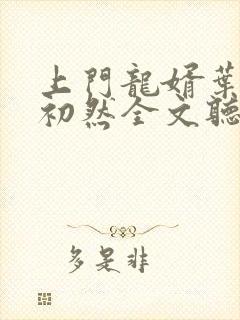 上門龍婿葉
初然全文聽
多是非